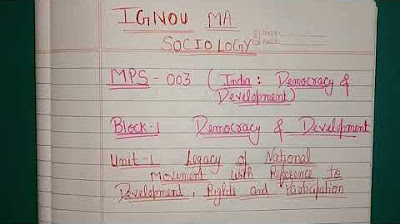 IGNOU MA
SOCIOLOGY
MPS - 003 ( India : Democracy &
Development)
Block-1 Democracy & Development
Unit-1 Legacy of National
Movement with Reference to
Development, Rights and Participation